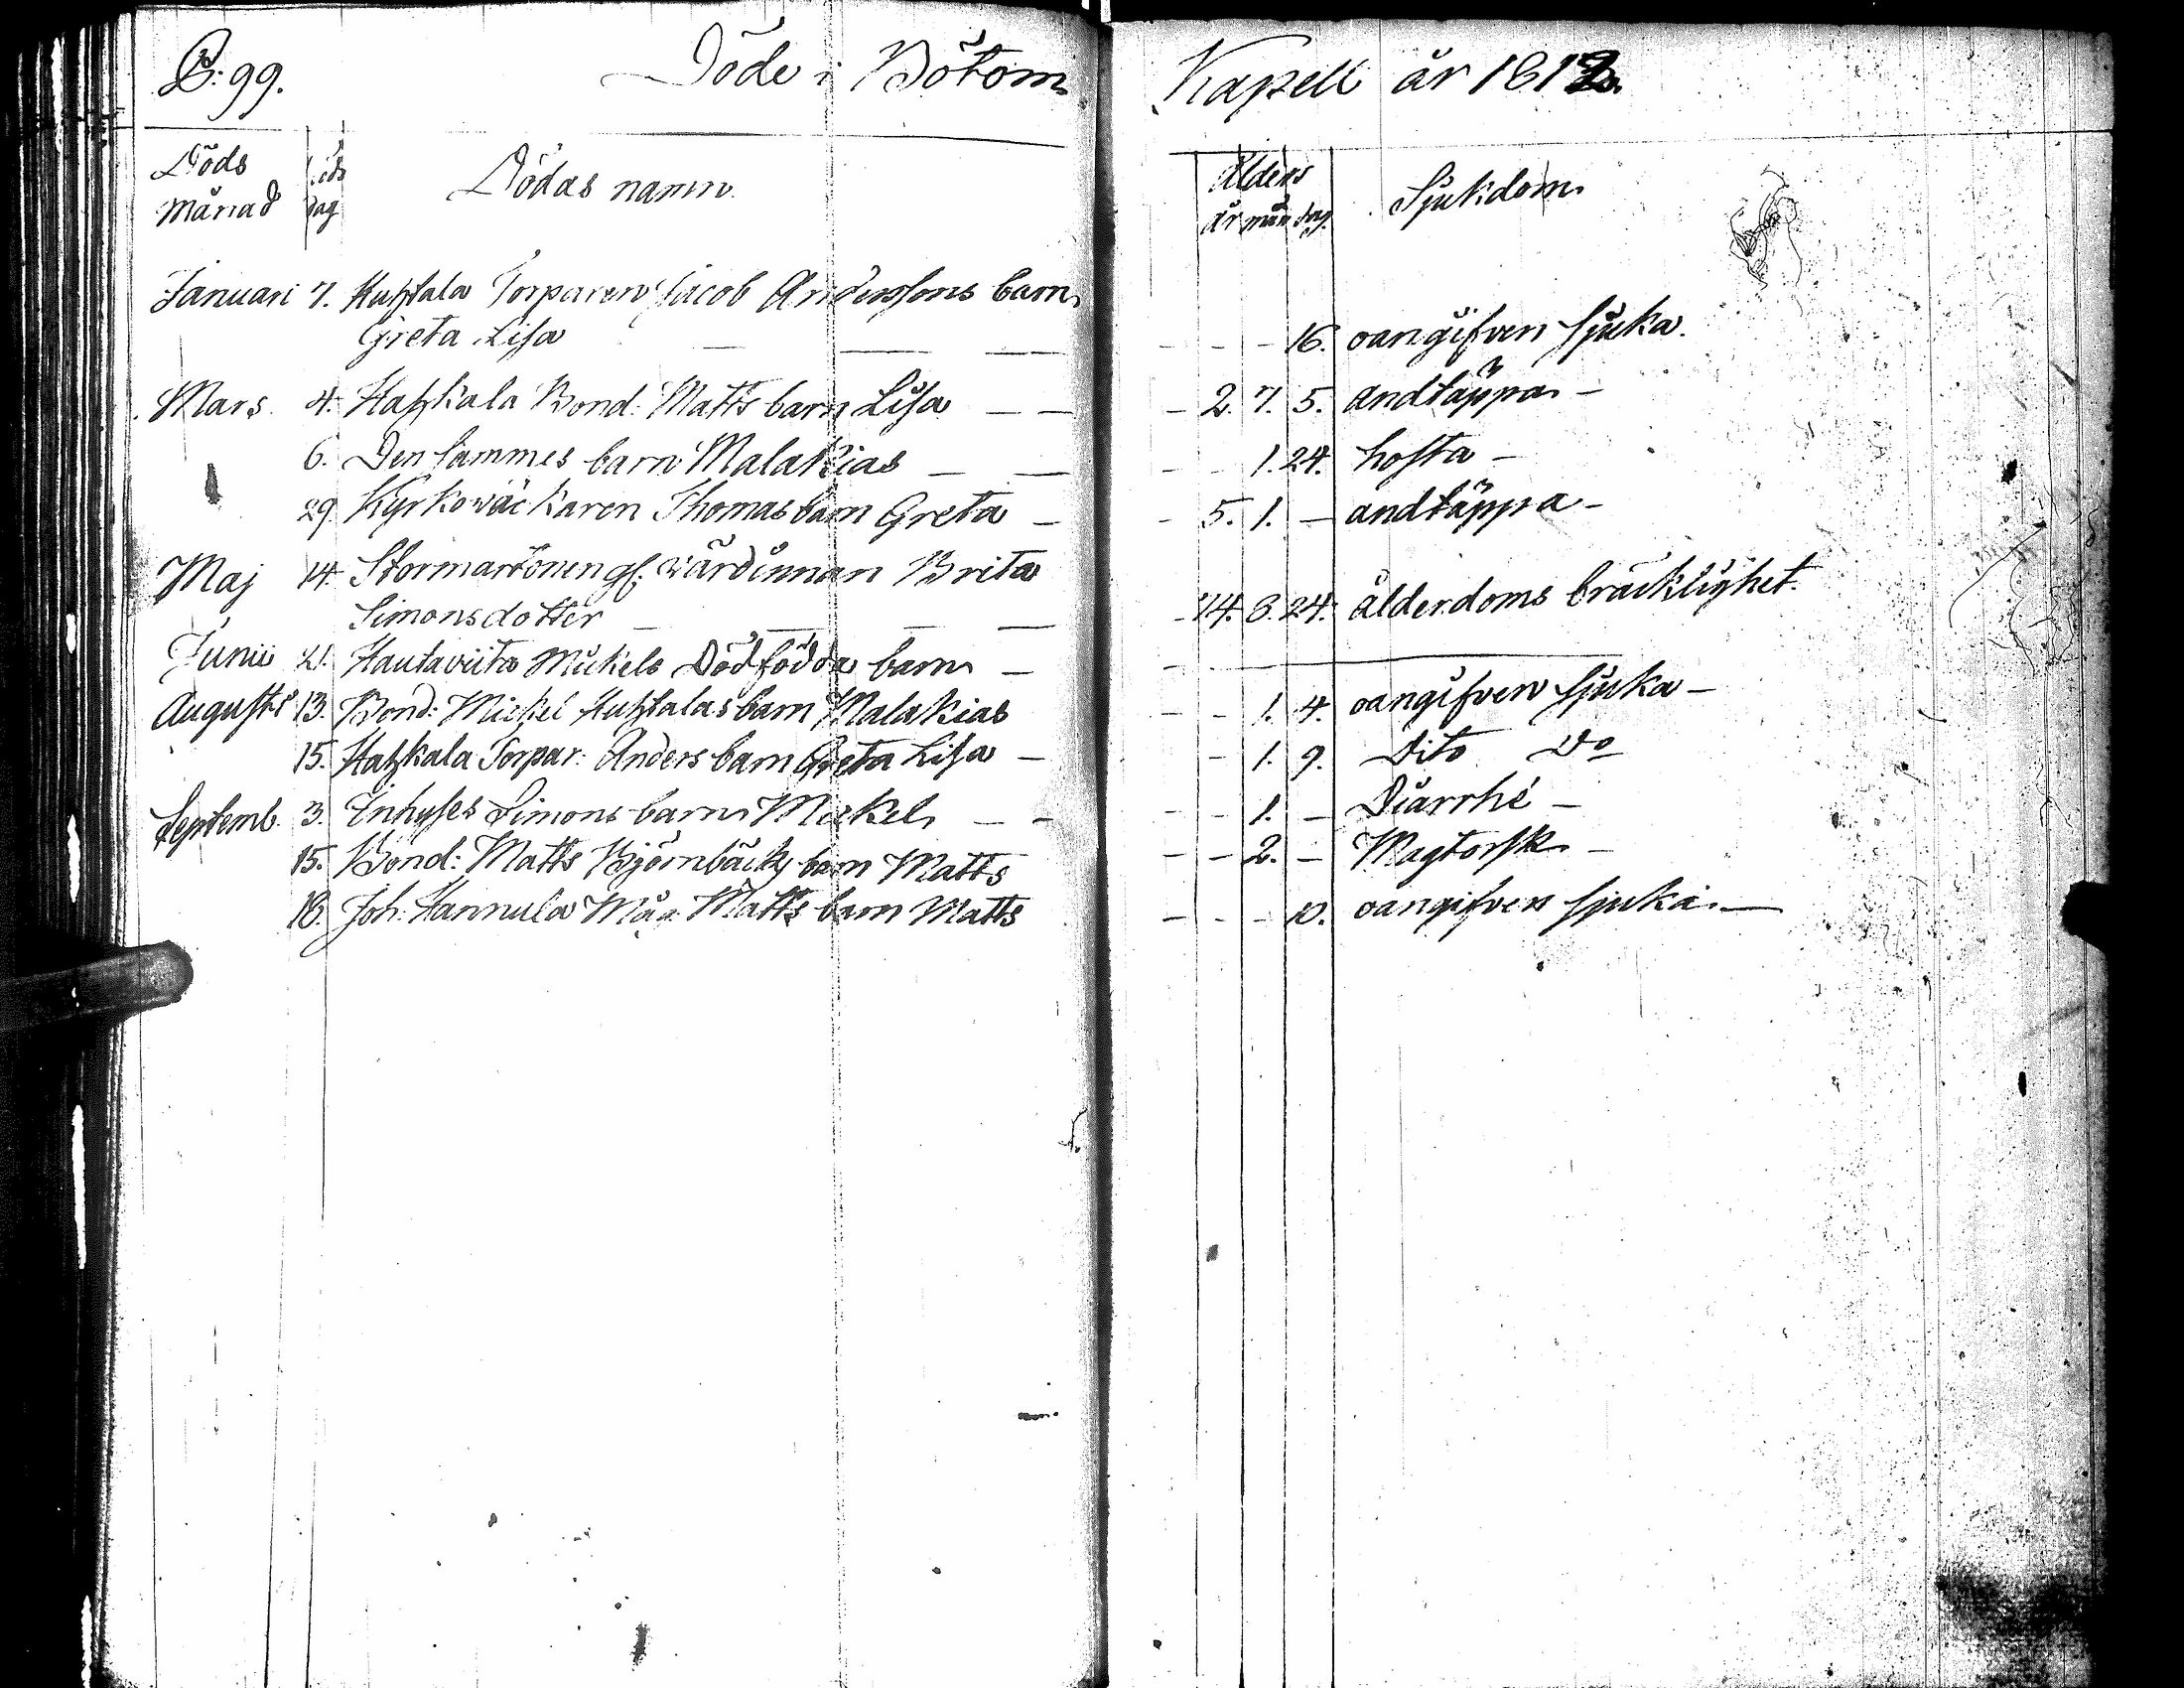 P: 99. Döde i Bötom Kapell år 1812.
Döds Månad Döds dag Dödas namn. Ålders år mån dag. Sjukdom
Januari 7. Huhtala Torparen Jacob Anderssons barn
Greta Lisa — — — - - - 16. oangifven sjuka.
Mars 4. Hahkala Bond: Matts barn Lisa — — - 2. 7. 5. andtäppa -
6. Den sammes barn Malakias — — - - 1. 24. hosta -
29. Kyrkoväcktaren Thomas barn Greta - - 5. 1. - andtäppa -
Maj 14. Stormartonen gl. wärdinnan Brita
Simonsdotter — — — — - 74. 8. 24. ålderdoms bräcklighet.
Junii 21. Hautaviita Mickels Dödfödda barn -
Augusti 13. Bond: Mickel Huhtalas barn Malakias - - 1. 4. oangifven sjuka -
15. Hahkala Torpar: Anders barn Greta Lisa - - - 1. 9. Dito Do
Septemb. 3. Inhyses Simons barn Mickel - - - - 1. - Diarrhé -
15. Bond: Matts Björnbäck barn Matts - - 2. - Magtorsk -
18. Joh: Hannula Måg Matts barn Matts - - - 10. oangifven sjuka. —